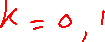 K = 0, 1